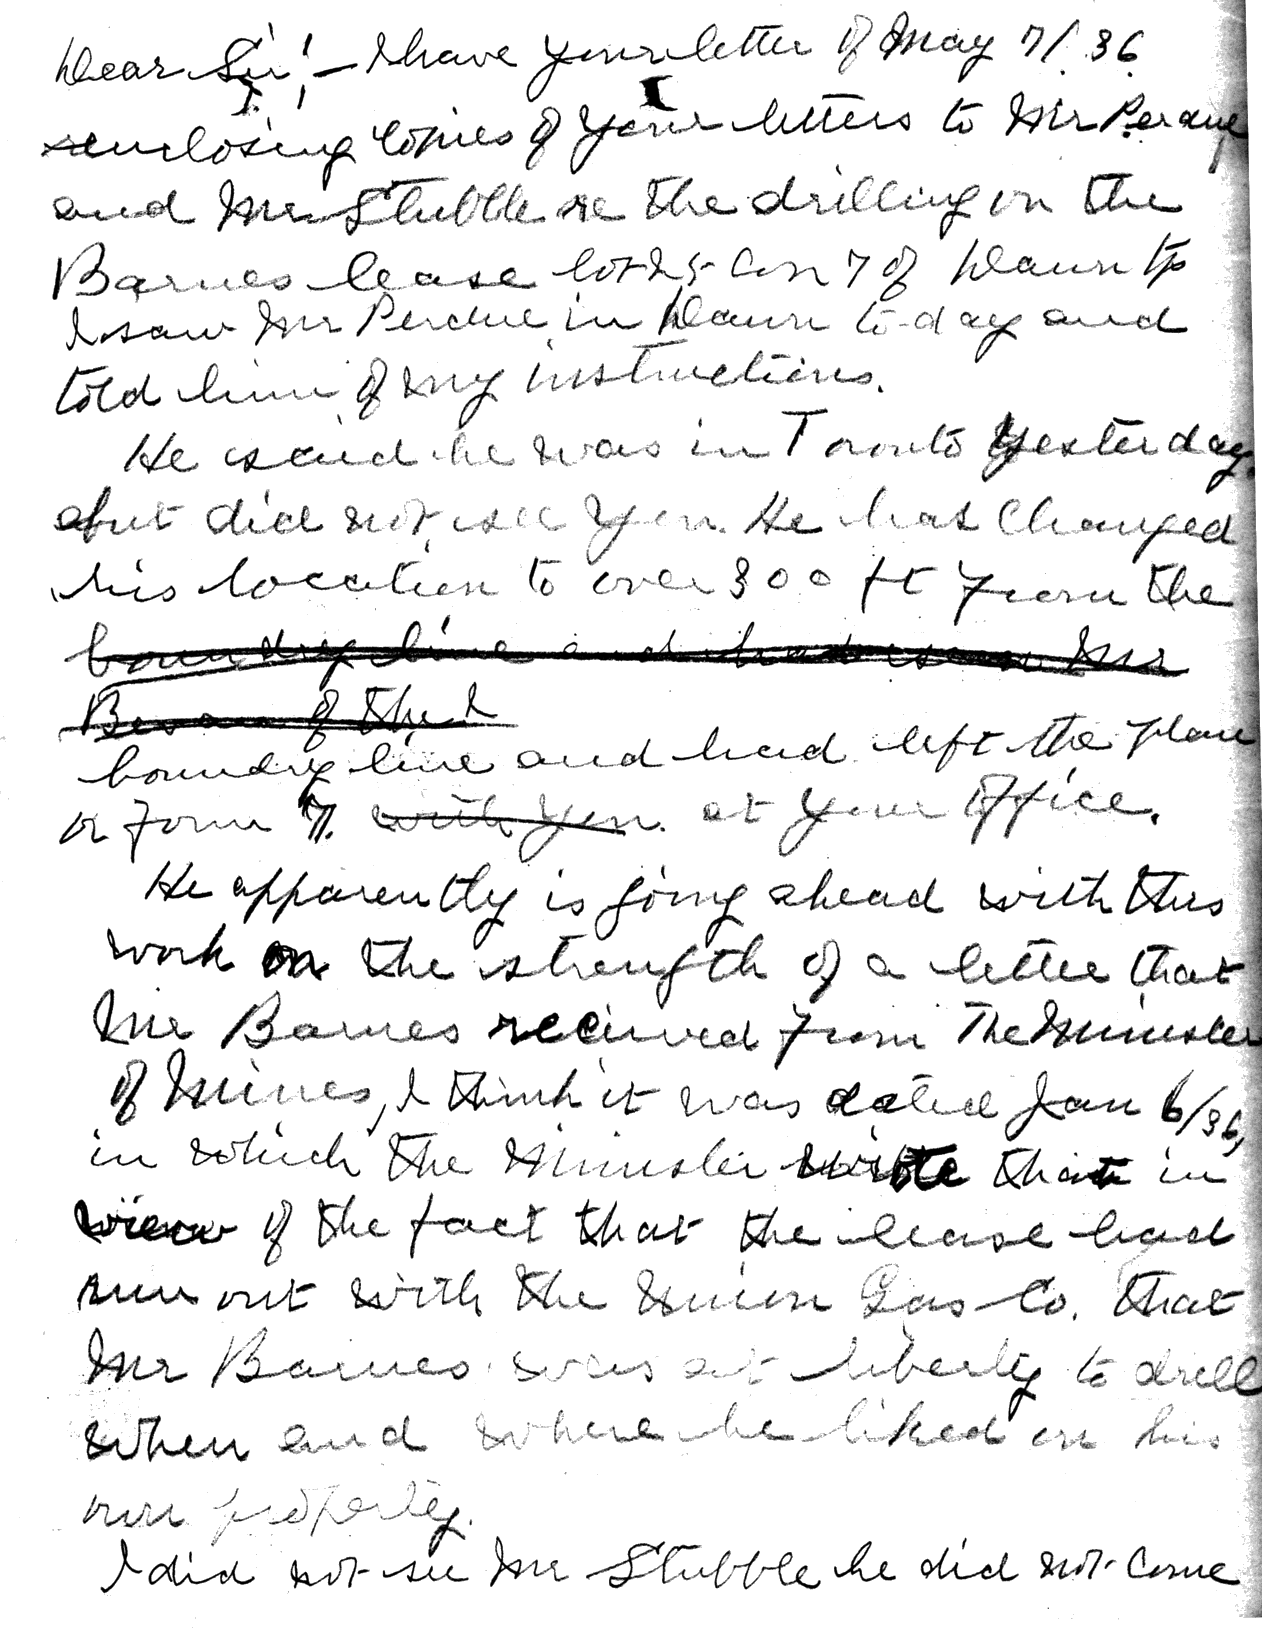 Dear Sir:— I have your letter of May 7/36
enclosing copies of your letters to Mr Perdue
and Mr Stubble re the drilling on the
Barnes lease lot 25 Con 7 of Dawn tp
I saw Mr Perdue in Dawn to-day and
told him of my instructions.
He said he was in Toronto yesterday
but did not see you. He has changed
his location to over 300 ft from the
boundry line and had seen Mr
of the
boundry line and had left the plan
or form 7. with you. at your office.
He apparently is going ahead with this
work on the strength of a letter that
Mr Barnes recieved from The Minister
of Mines, I think it was dated Jan 6/36,
in which the Minister wrote that in
view of the fact that the lease had
run out with the Union Gas Co. that
Mr Barnes was at liberty to drill
when and where he liked on his
own property.
I did not see Mr Stubble he did not come